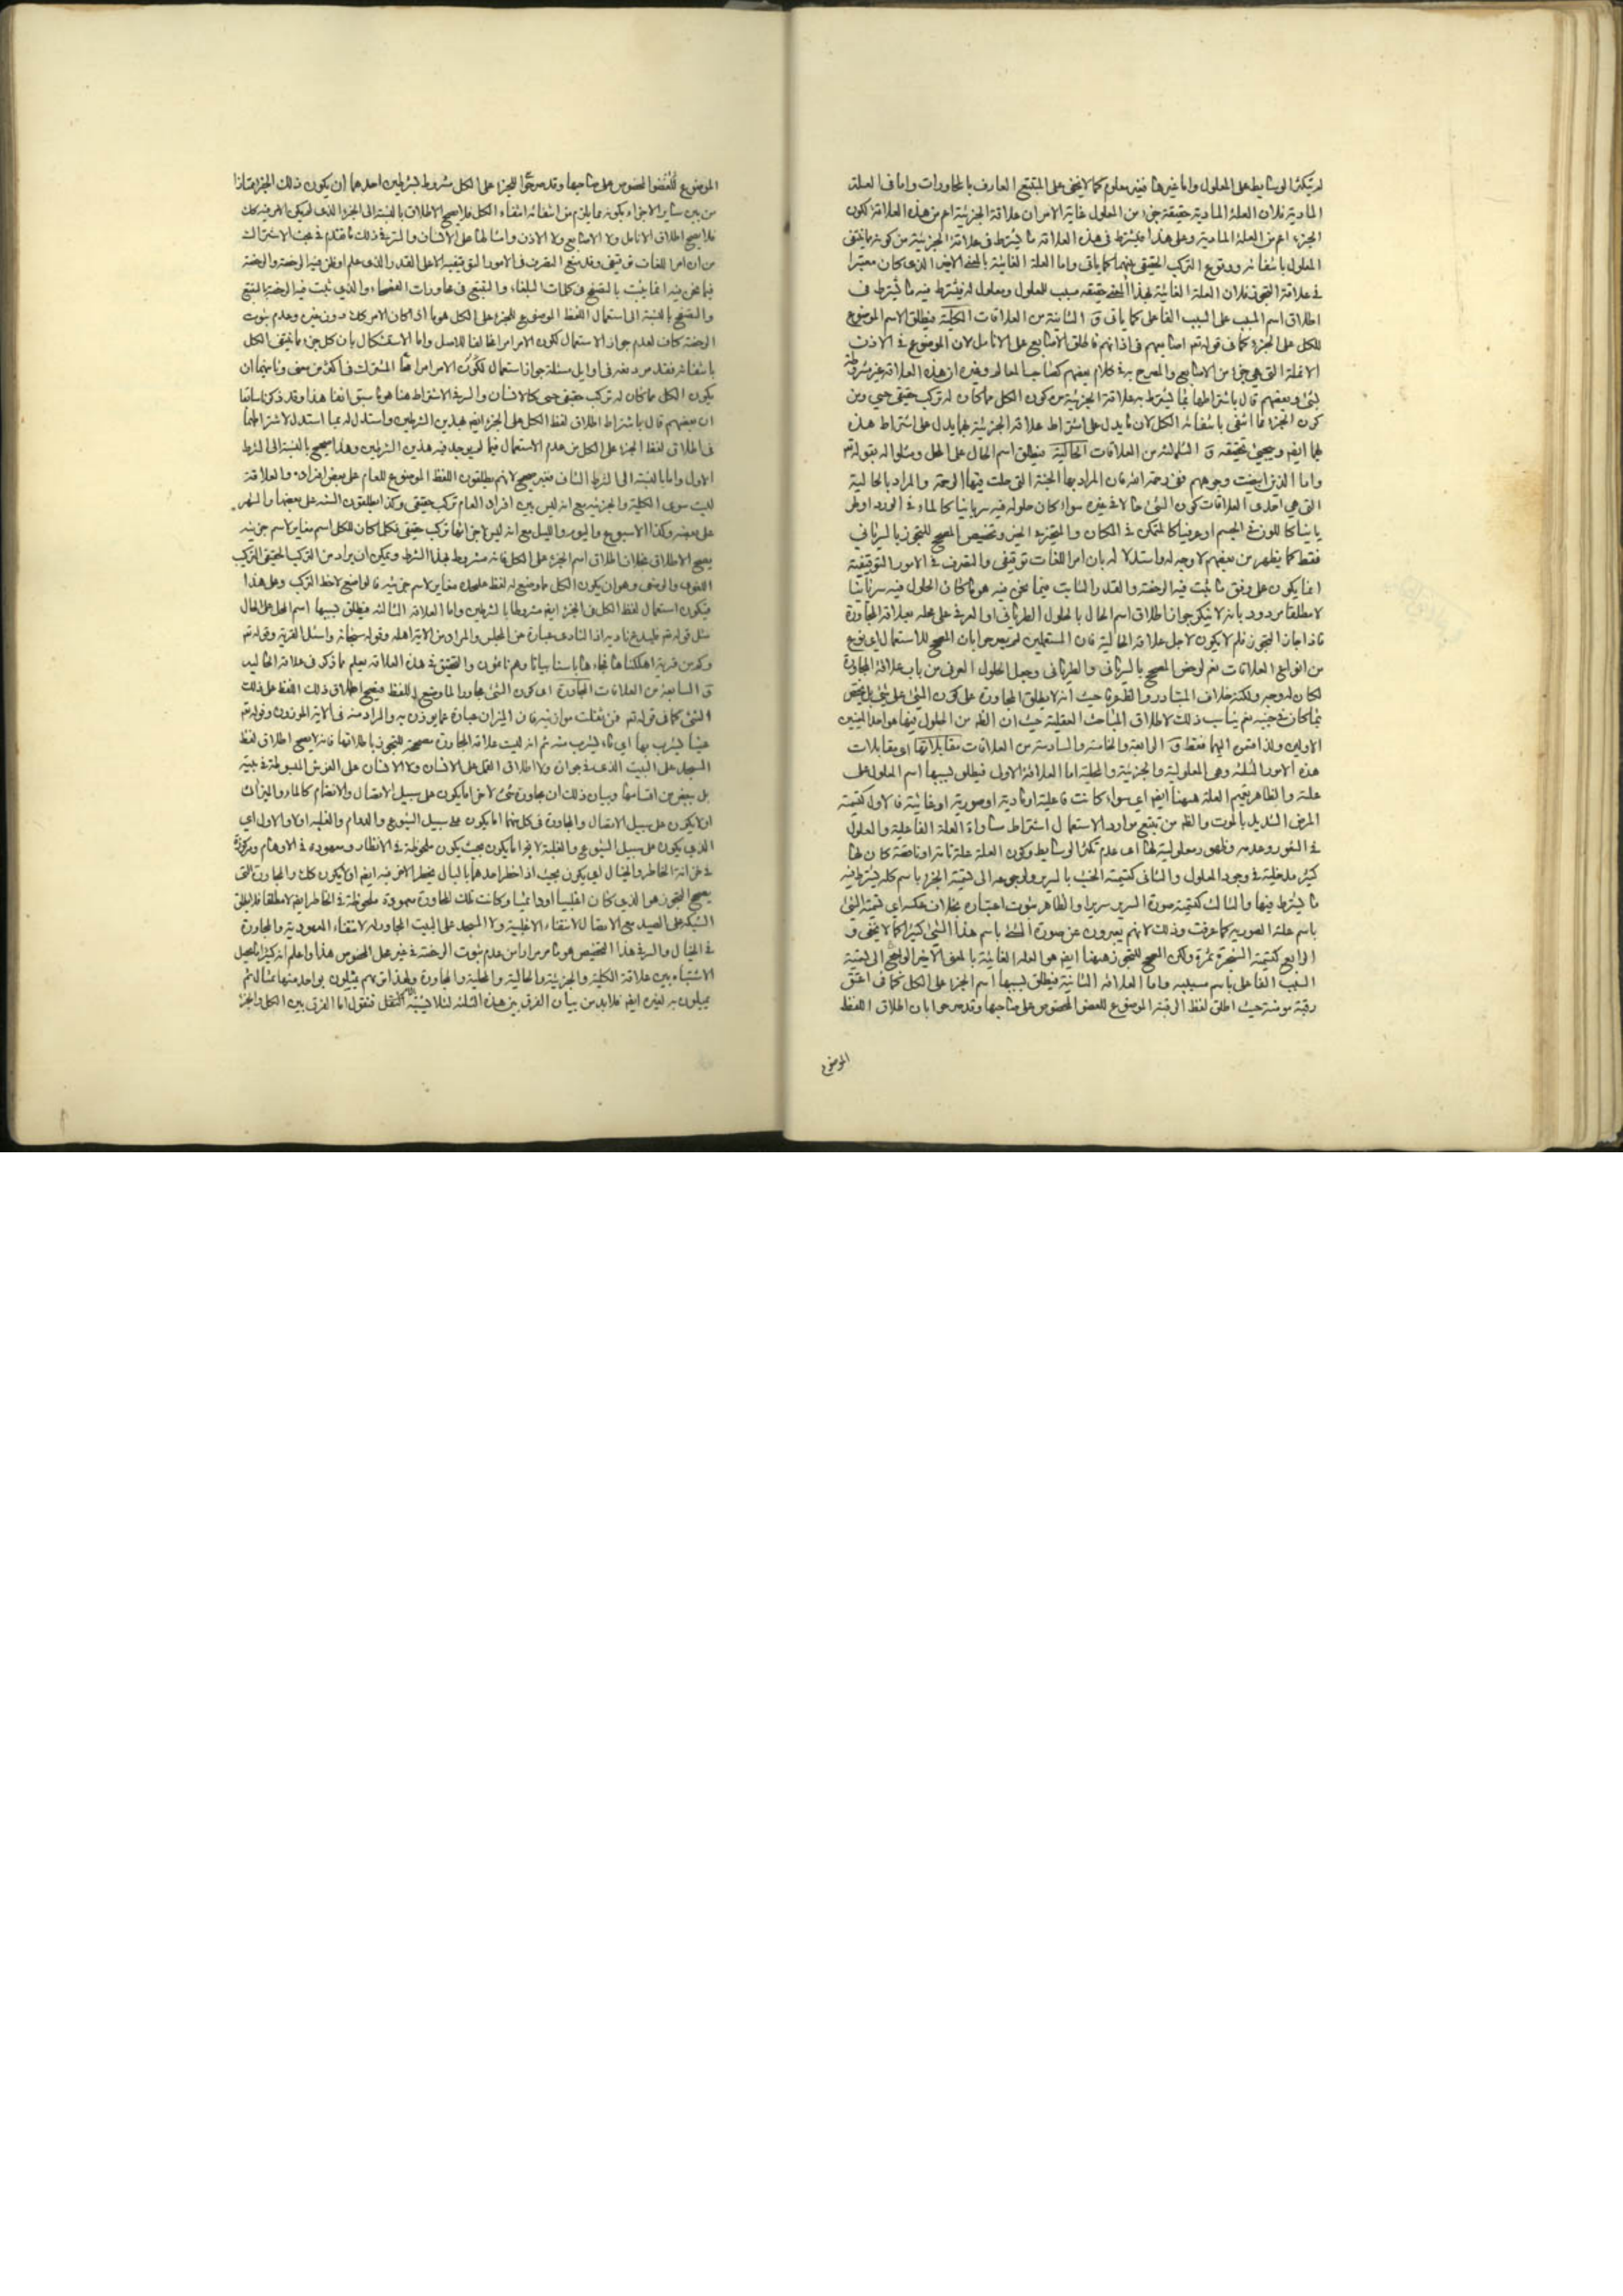 لم تكثر الوسائط على المعلول واما غيرها فغير معلوم كما لا يخفى على المتتبع العارف بالمحاورات واما فى العلة
المادية فلان العلة المادية حقيقة جزء من المعلول غاية الامر ان علاقة الجزئية اعم من هذه العلاقة لكون
الجزء اعم من العلة المادية وعلى هذا يشترط فى هذه العلاقة ما يشترط فى علاقة الجزئية من كونه مما ينتفى
المعلول بانتفائه ووقوع التركب الحقيقى بينهما كما ياتى واما العلة الغائية بالمعنى الاخير الذى كان معتبرا
فى علاقة التجوز فلان العلة الغائية بهذا المعنى حقيقة مسبب للمعلول ومعلول له فيشترط فيه ما يشترط فى
اطلاق اسم المسبب على السبب الفاعلى كما ياتى و الثانية من العلاقات الكلية فيطلق الاسم الموضوع
للكل على الجزء كما فى قوله تعم اصابعهم فى اذانهم فاطلق الاصابع على الانامل لان الموضوع فى الاذن
الانملة التى هى جزء من الاصابع والمصرح به فى كلام بعضهم كصاحب المعالم وغيره ان هذه العلاقة غير مشروطة
بشئ وبعضهم قال باشتراطها بما يشترط به علاقة الجزئية من كون الكل مما كان له تركب حقيقى حسى ومن
كون الجزء مما انتفى بانتفائه الكل لان ما يدل على اشتراط علاقة الجزئية بهما يدل على اشتراط هذه
بهما ايضا وسيجئ تحقيقه و الثالثة من العلاقات الحالية فيطلق اسم الحال على المحل ومثلوا له بقوله تعم
واما الذين ابيضت وجوههم ففى رحمة الله فان المراد بها الجنة التى حلت فيها الرحمة والمراد بالحالية
التى هى احدى العلاقات كون الشئ حالا فى غيره سواء كان حلوله فيه سريانيا كالماء فى الورد او طر
يانيا كاللون فى الجسم او عرفيا كالمتمكن فى المكان والمتحيز فى الحيز وتخصيص المصحح للتجوز بالسريانى
فقط كما يظهر من بعضهم لا وجه له واستدلاله بان امر اللغات توقيفى والتصرف فى الامور التوقيفية
انما يكون على وفق ما ثبت فيه الرخصة والقدر الثابت فيما نحن فيه هو ما كان الحلول فيه سريانيا
لا مطلقا مردود بانه لا ينكر جواز اطلاق اسم الحال بالحلول الطريانى او العرفى على محله بعلاقة المجاورة
فاذا جاز التجوز فلم لا يكون لاجل علاقة الحالية فان المستعملين لم يصرحوا بان المصحح للاستعمال اى نوع
من انواع العلاقات نعم لو خص المصحح بالسريانى والطريانى وجعل الحلول العرفى من باب علاقة المجاورة
لكان له وجه ولكنه خلاف المتبادر والظهور حيث انه لا يطلق المجاورة على كون الشئ على شئ بل يختص
بما كان فى جنبه نعم يناسب ذلك لاطلاق المباحث العقلية حيث ان الظه من الحلول فيها هو احد المعنيين
الاولين ولذا قسم اليهما فقط و الرابعة والخامسة والسادسة من العلاقات مقابلاتها اى مقابلات
هذه الامور الثلثة وهى المعلولية والجزئية والمحلية اما العلاقة الاولى فيطلق بسببها اسم المعلول على
علته والظاهر تعميم العلة ههنا ايضا اى سواء كانت فاعلية او مادية او صورية او غائية فالاول كتسمية
المرض الشديد بالموت والظه من تتبع موارد الاستعمال اشتراط مساواة العلة الفاعلية والمعلول
فى الظهور وعدمه وظهور معلوليته لها اى عدم تكثر الوسائط وكون العلة علة تامة او ناقصة كان لها
كثير مدخلية فى وجود المعلول والثانى كتسمية الخشب بالسرير ولرجوعه الى تسمية الجزء باسم كله يشترط فيه
ما يشترط فيها والثالث كتسمية صورة السرير سريرا والظاهر ثبوت اعتباره بخلاف عكسه اى تسمية الشئ
باسم علته الصورية كما عرفت وذلك لانهم يعبرون عن صورة الشئ باسم هذا الشئ كثيرا كما لا يخفى و
الرابع كتسمية الشجرة ثمرة ولكن المصحح للتجوز ههنا ايضا هو العلة الغائية بالمعنى الاخير الراجع الى تسمية
السبب الفاعل باسم مسببه واما العلاقة الثانية فيطلق بسببها اسم الجزء على الكل كما فى اعتق
رقبة مومنة حيث اطلق لفظ الرقبة الموضوع للعضو المخصوص على صاحبها وقد صرحوا بان اطلاق اللفظ
الموضوع
الموضوع للعضو المخصوص على صاحبها وقد صرحوا للجزء على الكل مشروط بشرطين احدهما ان يكون ذلك الجزء ممتازا
من بين ساير الاجزاء بكونه مما يلزم من انتفائه انتفاء الكل فلا يصح الاطلاق بالنسبة الى الجزء الذى لم يكن الامر فيه كك
فلا يصح اطلاق الانامل ولا الاصابع ولا الاذن وامثالها على الانسان والسر فى ذلك ما تقدم فى بحث الاشتراك
من ان امر اللغات توقيفى وقد منع التصرف فى الامور التوقيفية الا على القدر الذى علم او ظن فيه الرخصة والرخصة
فيما نحن فيه انما يثبت بالتصفح فى كلمات البلغاء والتتبع فى محاورات الفصحاء والذى ثبت فيه الرخصة التتبع
والتصفح بالنسبة الى استعمال اللفظ الموضوع للجزء على الكل هو ما اذا كان الامر كك دون غيره وعدم ثبوت
الرخصة كاف لعدم جواز الاستعمال لكون الامر امرا مخالفا للاصل واما الاستشكال بان كل جزء ما ينتفى الكل
بانتفائه فقد مر دفعه فى اوايل مسئلة جواز استعمال المشترك فى اكثر من معنى وثانيهما ان
يكون الكل مما كان له تركب حقيقى حسى كالانسان والسر فى الاشتراط هنا هو ما سبق انفا هذا وقد ذكرنا سابقا
ان بعضهم قال باشتراط اطلاق لفظ الكل على الجزء ايضا بهذين الشرطين واستدل له بما استدل لاشتراطهما
فى اطلاق لفظ الجزء على الكل من عدم الاستعمال فيما لم يوجد فيه هذين الشرطين وهذا صحيح بالنسبة الى الشرط
الاول واما بالنسبة الى الشرط الثانى فغير صحيح لانهم يطلقون اللفظ الموضوع للعام على بعض افراده والعلاقة
ليست سوى الكلية والجزئية مع انه ليس بين افراد العام تركب حقيقى وكذا يطلقون السنة على بعضها والشهر
على بعضه وكذا الاسبوع واليوم والليل مع انه ليس بين اجزائها تركب حقيقى فكلما كان للكل اسم مغاير لاسم جزئه
يصح الاطلاق بخلاف اطلاق اسم الجزء على الكل فانه مشروط بهذا الشرط ويمكن ان يراد من التركب الحقيقى التركب
اللغوى والوضعى وهو ان يكون الكل ما وضع له لفظ عليحدة مغاير لاسم جزئه فالواضع لاحظ التركب وعلى هذا
فيكون استعمال لفظ الكل فى الجزء ايضا مشروطا بالشرطين واما العلاقة الثالثة فيطلق بسببها اسم المحل على الحال
مثل قوله تعم فليدع ناديه اذ النادى عبارة عن المجلس والمراد من الاية اهله وقوله سبحانه واسئل القرية وقوله تعم
وكم من قرية اهلكناها فجاءها باسنا بياتا وهم نائمون والتحقيق فى هذه العلاقة يعلم مما ذكر فى علاقة الحالية
و السابعة من العلاقات المجاورة اى كون الشئ مجاورا لما وضع له اللفظ فيصح اطلاق ذلك اللفظ على ذلك
الشئ كما فى قوله تعم فمن ثقلت موازينه فان الميزان عبارة عما يوزن به والمراد منه فى الاية الموزون وقوله تعم
عينا يشرب بها اى ماء يشرب منه ثم انه ليست علاقة المجاورة مصححة للتجوز باطلاقها فانه لا يصح اطلاق لفظ
المسجد على البيت الذى فى جواره ولا اطلاق القمل على الانسان ولا الانسان على الفرش المبسوطة فى جنبه
بل ببعض من اقسامها وبيان ذلك ان مجاورة شئ لاخر اما يكون على سبيل الاتصال والانضمام كالماء والميزاب
او لا يكون على سبيل الاتصال والمجاورة فى كل منهما اما يكون على سبيل الشيوع والدوام والغلبة او لا والاول اى
الذى يكون على سبيل الشيوع والغلبة لا يخ اما يكون بحيث يكون ملحوظة فى الانظار ومعهودة فى الاوهام ومركوزة
فى خزانة الخاطر والخيال اى يكون بحيث اذا خطر احدهما بالبال يخطر الاخر فيه ايضا او لا يكون كك والمجاورة التى
يصح التجوز هو الذى كان اغلبيا او دائميا وكانت تلك المجاورة معهودة ملحوظة فى الخاطر ايضا لا مطلقا فلا يطلق
الشبكة على الصيد مع الاتصال لانتفاء الاغلبية ولا المسجد على البيت المجاور له لانتفاء المعهودية والمجاورة
فى الخيال والسر فى هذا التخصيص هو ما مر مرارا من عدم ثبوت الرخصة فى غير محل الخصوص هذا واعلم انه كثيرا ما يحصل
الاشتباه بين علاقة الكلية والجزئية والحالية والمحلية والمجاورة ولهذا تريهم يمثلون بواحد منها بمثال ثم
يمثلون به لغيره ايضا فلابد من بيان الفرق بين هذه الثلثة لئلا يشتبه فنقول اما الفرق بين الكل والجزء